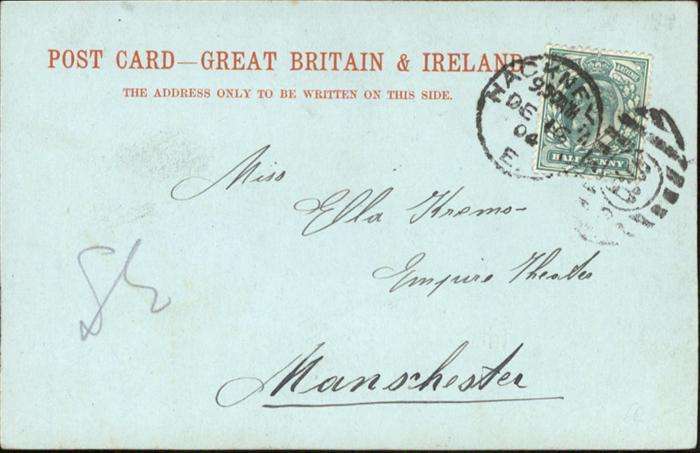 POST CARD—GREAT BRITAIN & IRELAND
THE ADDRESS ONLY TO BE WRITTEN ON THIS SIDE.
HACKNEY
DE
04
E
HALFPENNY
Miss
Ella Kremo-
Empire Theater
Manschester